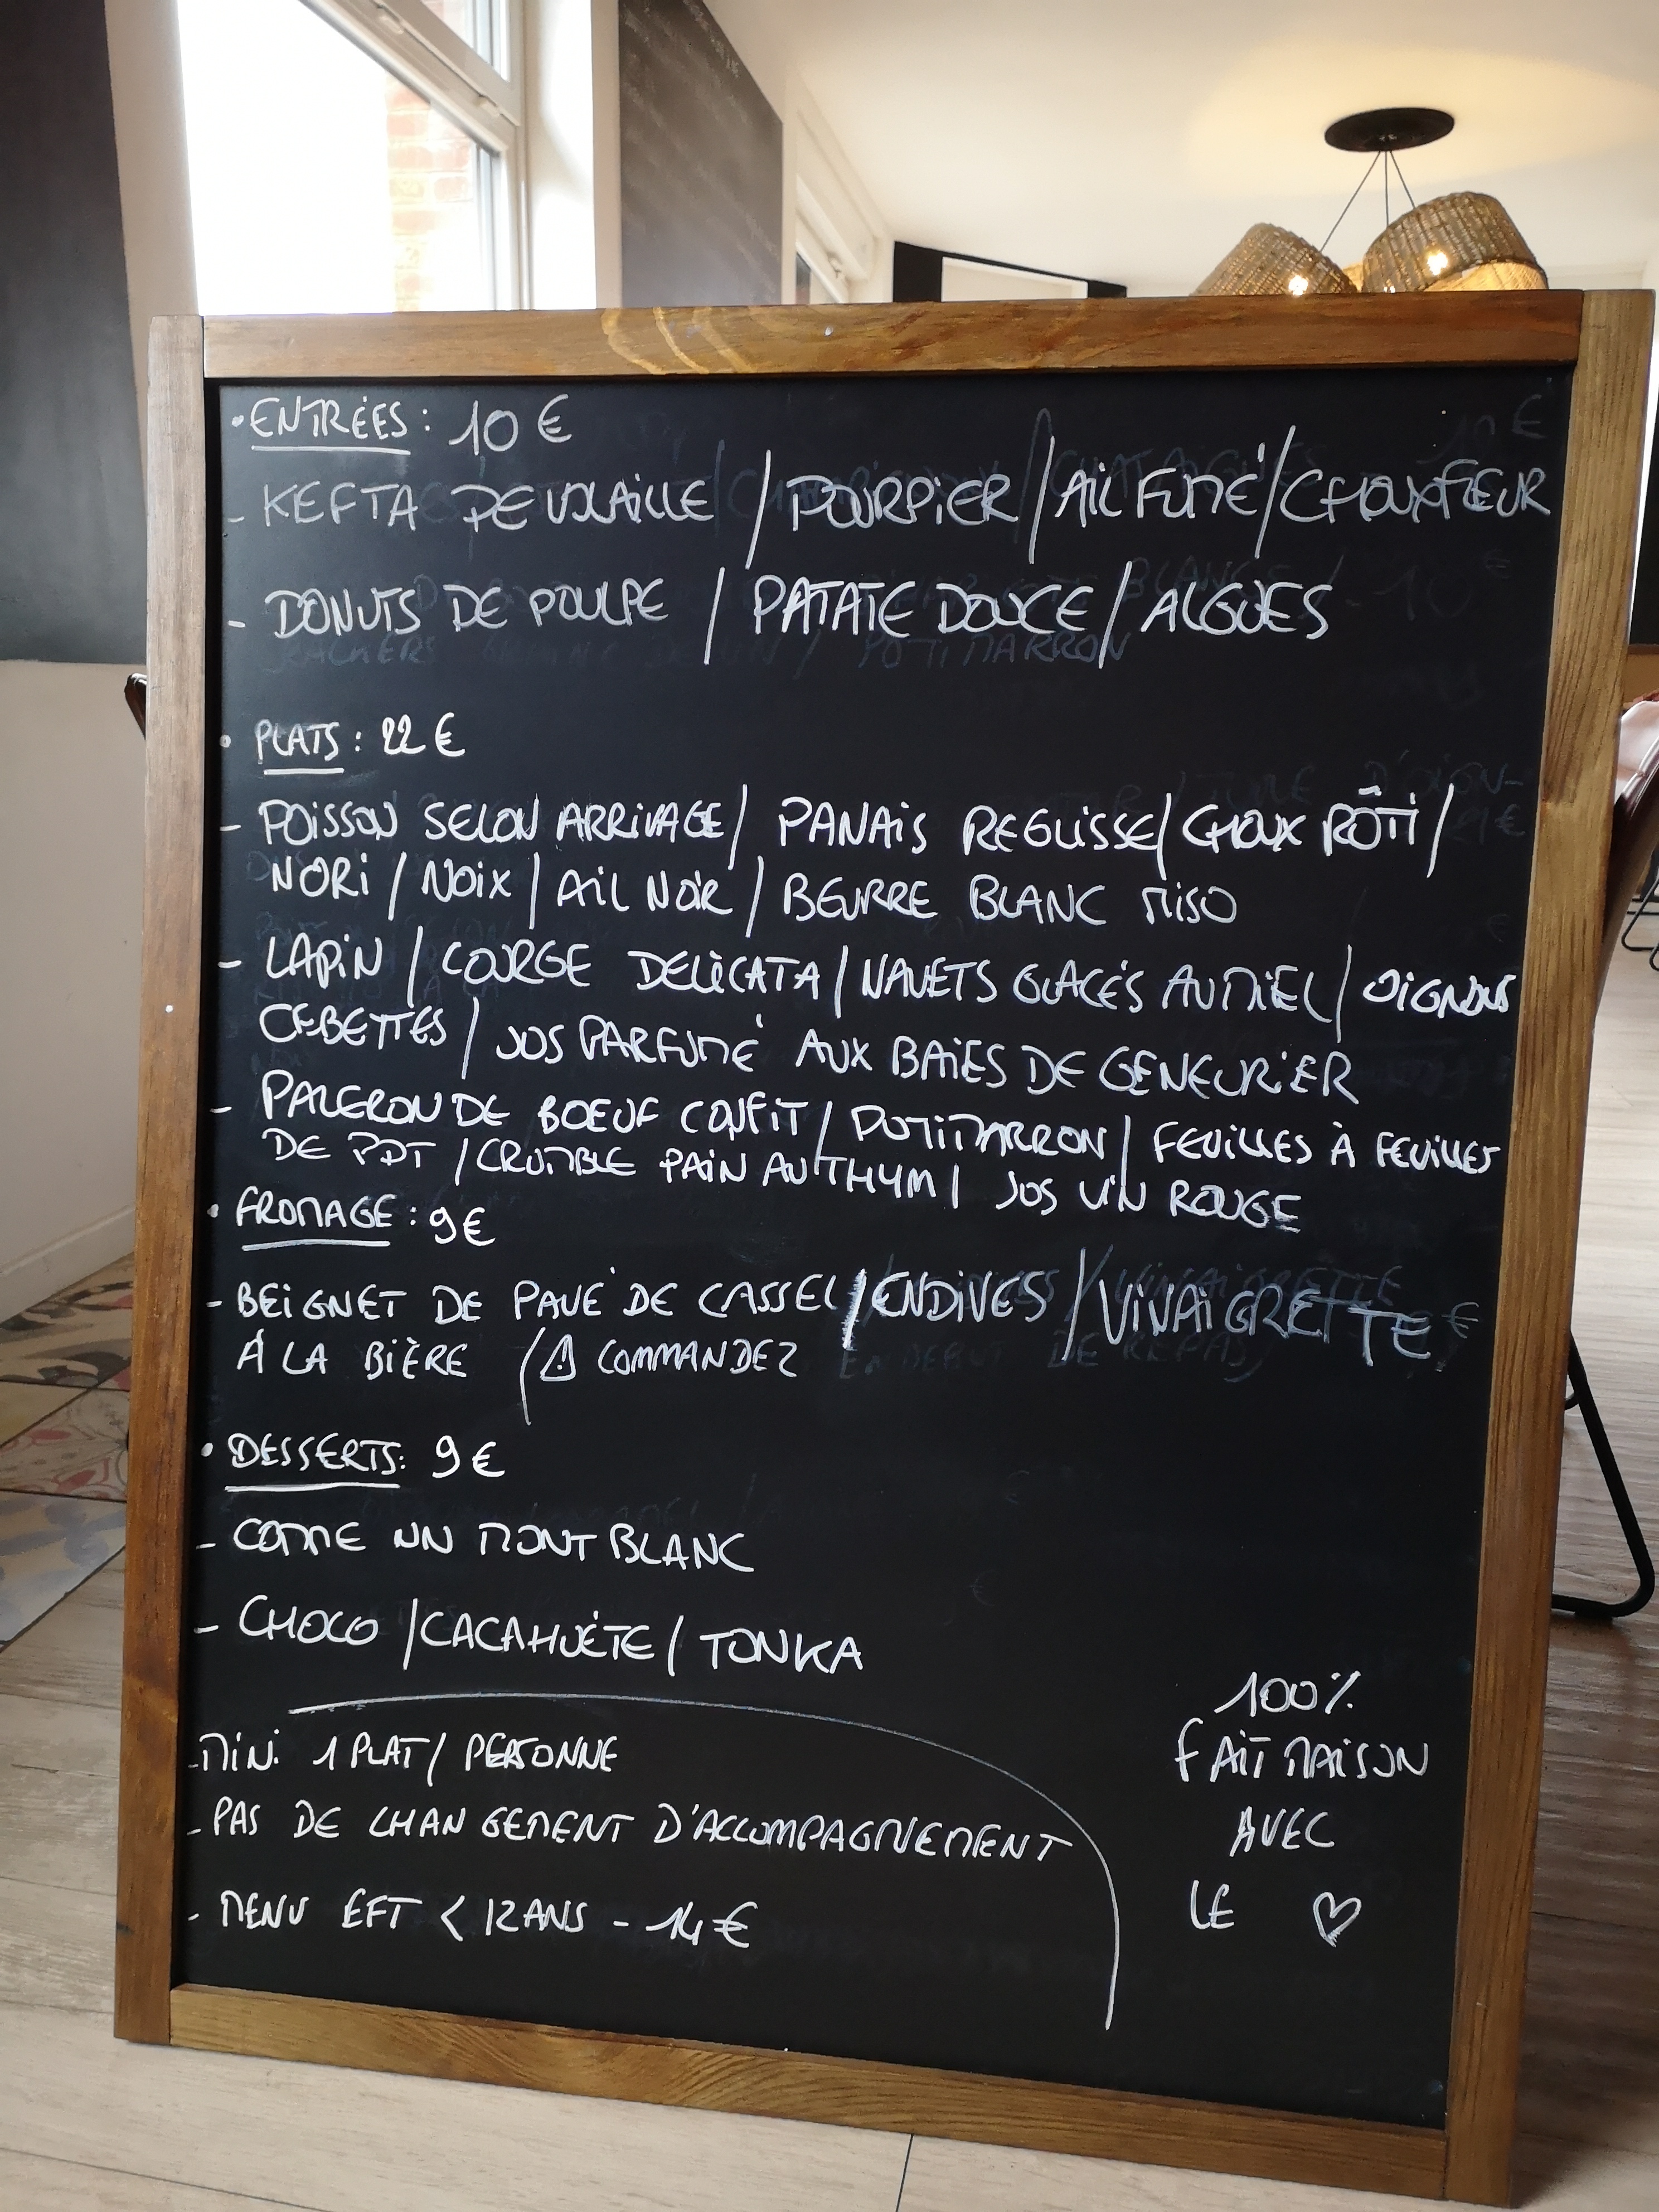 • ENTRÉES : 10 €
- KEFTA DE VOLAILLE / POURPIER / AIL FUMÉ / CHOUXFLEUR
- DONUTS DE POULPE / PATATE DOUCE / ALGUES
• PLATS : 22 €
- POISSON SELON ARRIVAGE / PANAIS REGLISSE / CHOUX RÔTI /
NORI / NOIX / AIL NOIR / BEURRE BLANC MISO
- LAPIN / COURGE DELICATA / NAVETS GLACÉS AU MIEL / OIGNONS
CEBETTES / JUS PARFUMÉ AUX BAIES DE GENEVRIER
- PALERON DE BOEUF CONFIT / POTIMARRON / FEUILLES À FEUILLES
DE PDT / CRUMBLE PAIN AU THYM / JUS VIN ROUGE
• FROMAGE : 9 €
- BEIGNET DE PAVÉ DE CASSEL / ENDIVES / VINAIGRETTE
À LA BIÈRE / ⚠ COMMANDEZ EN DEBUT DE REPAS
• DESSERTS : 9 €
- COMME UN MONT BLANC
- CHOCO / CACAHUÈTE / TONKA
- MINI 1 PLAT / PERSONNE
- PAS DE CHANGEMENT D'ACCOMPAGNEMENT
- MENU EFT < 12 ANS - 14 €
100%
FAIT MAISON
AVEC
LE ♡